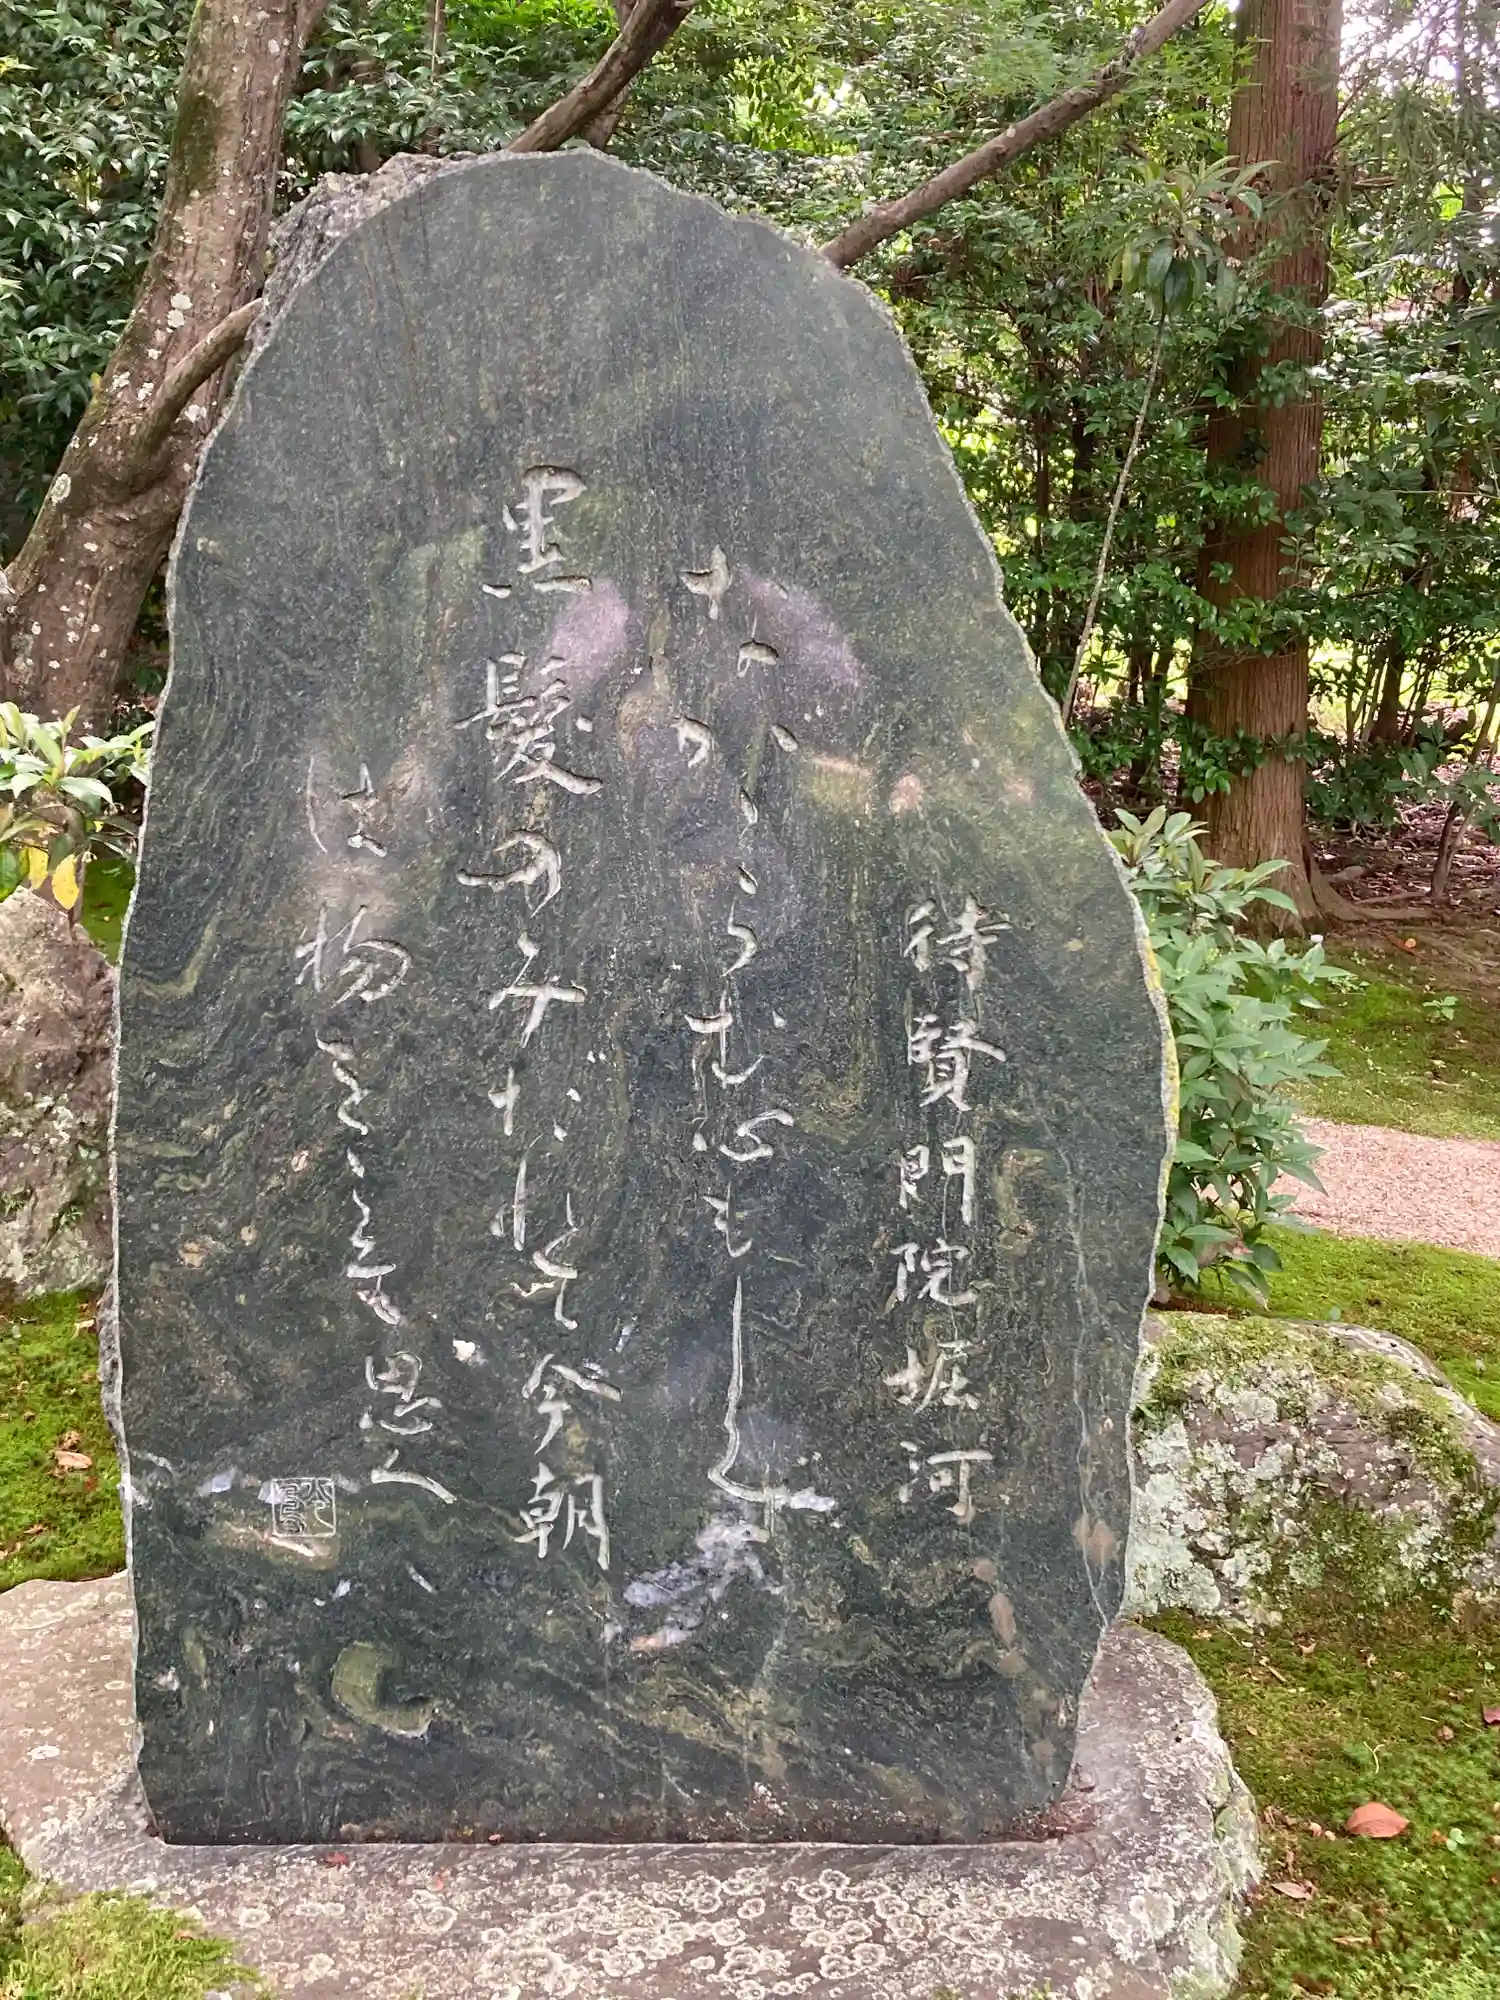 待賢門院堀河
ながゝらむ心もしらず
黒髪のみだれて今朝
は物をこそ思へ